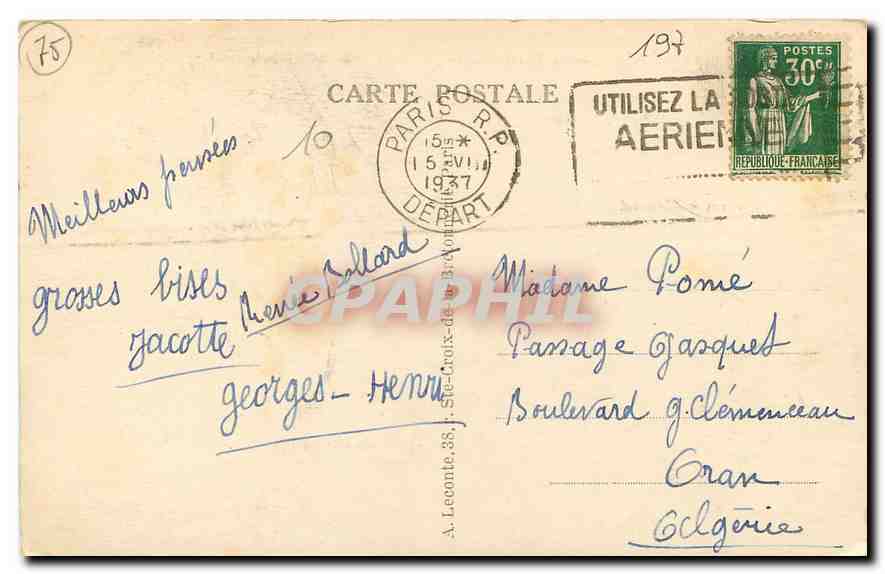 75
197
POSTES
30c
CARTE POSTALE
UTILISEZ LA
AERIENNE
REPUBLIQUE-FRANCAISE
PARIS R.P.
15 *
15 VI
1937
DÉPART
10
Meilleurs pensées
grosses bises
Renée Bollard
Jacotte
Georges-Henri
Madame Pomé
Passage Gasquet
Boulevard G. Clémenceau
Oran
Algérie
A. Leconte, 38, r. Ste-Croix-de-la-Bretonnerie, Paris
CPAPHIL